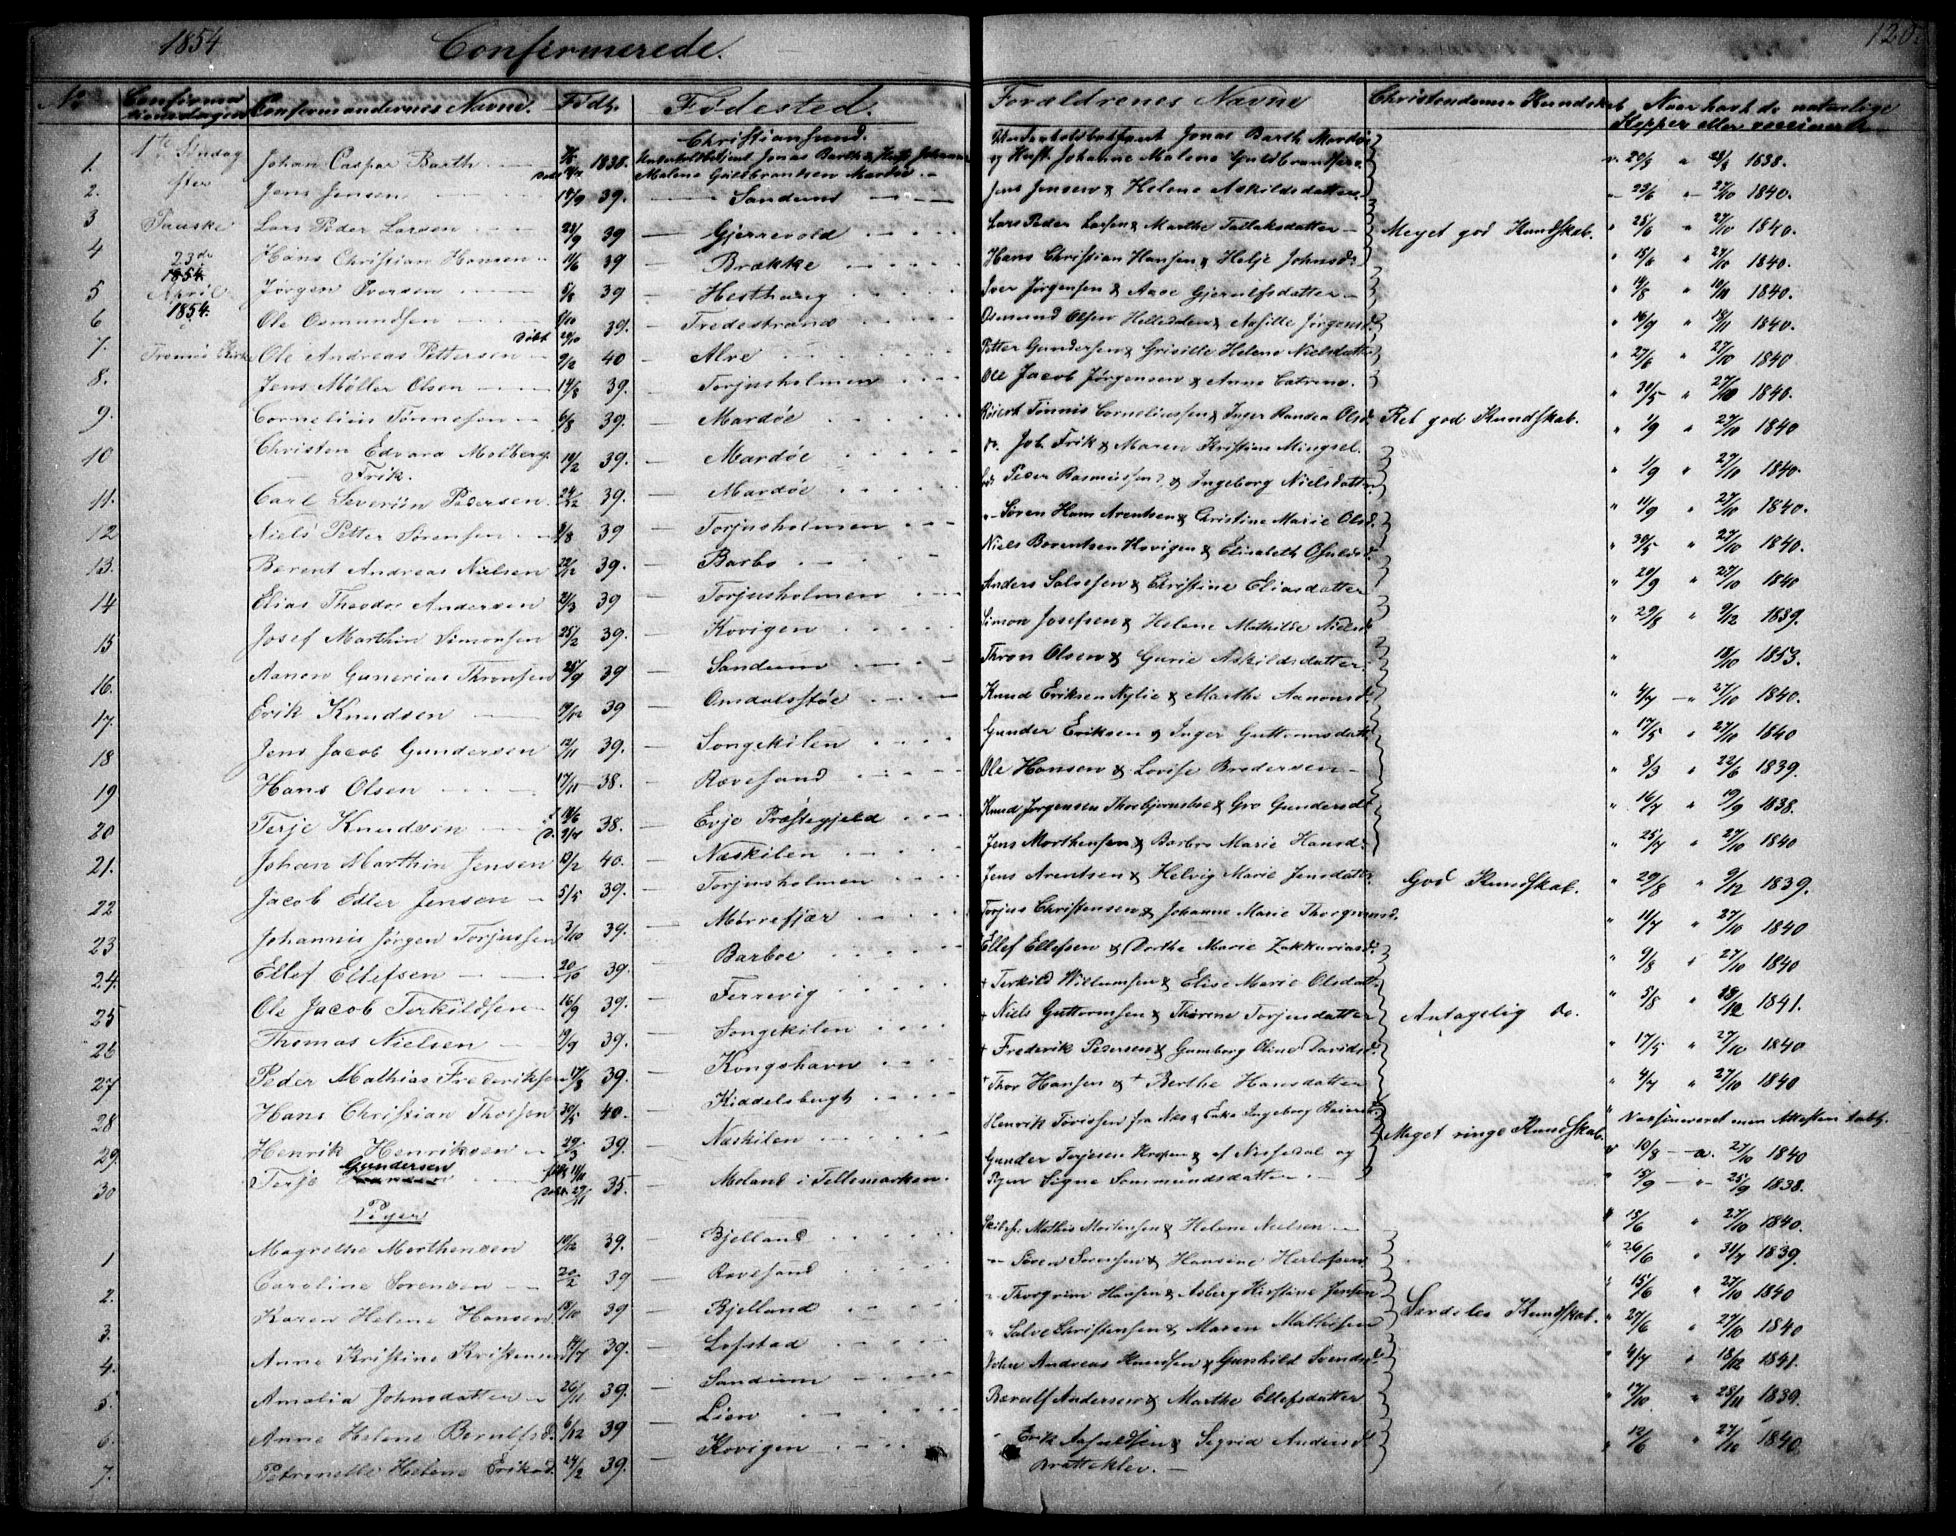 1854 Confirmerede. 120.
No. Confirmationsdagen Confirmandernes Navne. Født. Fødested. Forældrenes Navne Christendoms Kundskab Naar havt de naturlige Kopper eller vaccineret
1te Søndag efter Paaske 23de April 1854. Tromø Kirke
1. Johan Caspar Barth 1838. Christiansund. Jonas Barth Mardøe og Hust. Johanne Malene Guldbrandsen v. 20/8 " 28/8 1838.
2. Jens Jensen 14/9 39. Sandum Jens Jensen & Helene Askildsdatter 23/6 27/10 1840.
3 Lars Peder Larsen 23/9 39 Gjerrevold Lars Peder Larsen & Marthe Tallaksdatter Meget god Kundskab. " 25/6 " 27/10 1840.
4 Hans Christian Hansen 11/6 39 Brække Hans Christian Hansen & Helje Johnsd. " 15/6 27/10 1840.
5 Jørgen Iversen 5/8 39 Hesthaug Iver Jørgensen & Aase Gjerulfsdatter " 14/8 " 10/11 1840.
6 Ole Osmundsen 39. Tvedestrand Osmund Olsen & Jørgensd. " 16/9 " 18/11 1840.
7. Ole Andreas Pettersen 9/2 40 Alve Petter Gundersen & Grisille Helene Nielsdatter " 27/6 " 27/10 1840
8. Jens Møller Olsen 14/8 39. Torjusholmen Ole Jacob Jørgensen & Anne Catrine. " 30/5 " 27/10 1840.
9. Cornelius Tønnesen 6/8 39. Mardøe Tønnis Corneliussen & Inger Randea Olsd. Ret god Kundskab. " 1/9 " 27/10 1840
10 Christen Edvard Molberg Frik. 19/2 39. Mardøe do. Job Frik & Maren Kristiane Mingsel. " 1/9 " 27/10 1840.
11. Carl Severin Pedersen 24/12 39. Mardøe Peder Rasmussen & Ingeborg Nielsdatter " 11/9 " 27/10 1840.
12 Niels Petter Sørensen 9/8 39 Torjusholmen Søren Hans Arentsen & Christine Marie Olsd. " 30/5 " 27/10 1840.
13. Berent Andreas Nielsen 22/12 39. Barbo Niels Berentsen Kovigen & Elisabeth Osuldsd. " 20/9 " 27/10 1840
14 Elias Theodor Andersen 21/3 39 Torjusholmen Anders Salvesen & Christine Eliasdatter " 29/8 " 9/12 1839.
15 Josef Marthin Simonsen 25/2 39. Kovigen Simon Josefsen & Helene Mathilde Nielsd. " 18/10 1853.
16. Aanon Gunerius Thronsen 25/9 39 Sandum Thron Olsen & Gurie Askildsdatter " 4/7 27/10 1840.
17. Erik Knudsen 39 Omdalsstøe Knud Eriksen Nylie & Marthe Aanonsd. " 17/5 " 27/10 1840
18 Jens Jacob Gundersen 12/11 39. Songekilen Gunder Eriksen & Inger Guttormsdatt. " 8/3 " 22/6 1839.
19 Hans Olsen 17/11 38. Rævesand Ole Hansen & Lovise Brodersen " 16/7 " 19/9 1838.
20 Terje Knudsen 38. Evje Præstegjeld Knud Jørgensen & Gro Gundersd. " 25/7 " 27/10 1840
21. Johan Marthin Jensen 19/2 40. Næskilen Jens Morthensen & Barbro Marie Hansd. God Kundskab. " 29/8 " 9/12 1839.
Jacob Edler Jensen 5/5 39. Torjusholmen Jens Arentsen & Helvig Marie Jensdatter " 11/7 " 27/10 1840
22 Johannis Jørgen Torjussen 3/10 39. Mørrefjær Torjus Christensen & Johanne Marie " 9/8 " 27/10 1840
23 Ellef Ellefsen 20/10 39. Barboe Ellef Ellefsen & Dorthe Marie Zakkariasd. " 5/8 " 1841.
24. Ole Jacob Terkildsen 16/9 39. Færrevig + Terkild Willumsen & Elise Marie Olsdatt. Antagelig do. " 17/5 " 27/10 1840
25 Thomas Nielsen 19/9 39. Songekilen + Niels Guttormsen & Therene Torjusdatter " 4/7 " 27/10 1840
26 Peder Mathias Frederiksen 17/8 39. Kongshavn + Frederik Pedersen & Gumborg Oline Davidsd.
27 Hans Christian Thorsen 40. Kiddelsbugt + Thor Hansen & + Berthe Hansdatter " Vaccineret men Attesten tabt.
28 Henrik Henriksen 29/3 39. Næskilen Henrik Tørresen fra Næs & Enke Ingeborg Meget ringe Kundskab. 10/8 a. 27/10 1840
29. Terje Gundersen 35. Moland i Tellemarken. Gunder Terjesen & af Nissedal og 15/9 25/9 1838.
30 Pigen Signe Sommundsdatter.
Piger
1 Magrethe Morthensen 10/12 39. Bjelland Mathis Mortensen & Helene Nielsen 15/6 " 27/10 1840.
2. Caroline Sørensen 20/2 39 Rævesand Søren Sørensen & Hansine Herlofsen " 26/6 " 31/7 1839.
3. Karen Helene Hansen 18/10 39 Bjelland Thorgrim Hansen & Asberg Kirstine Jensen Særdeles Kundskab. " 15/6 " 27/10 1840
4. Anne Kristine Kristensen 14/7 39. Lofstad " Salve Christensen & Maren Mathisen " 27/6 " 27/10 1840
5. Amalia Johnsdatter 26/11 39. Sandum John Andreas Knudsen & Gunhild Svendsd. " 4/7 " 18/12 1841.
6. Anne Helene Berulfsd. 6/12 39 Lien Berulf Andersen & Marthe Ellefsdatter " 17/10 " 28/11 1839.
7. Petrinelle Helene Eriksd. 24/2 39. Kovigen Erik & Sigrid Andersd. Bratteklev. " 12/6 " 27/10 1840.